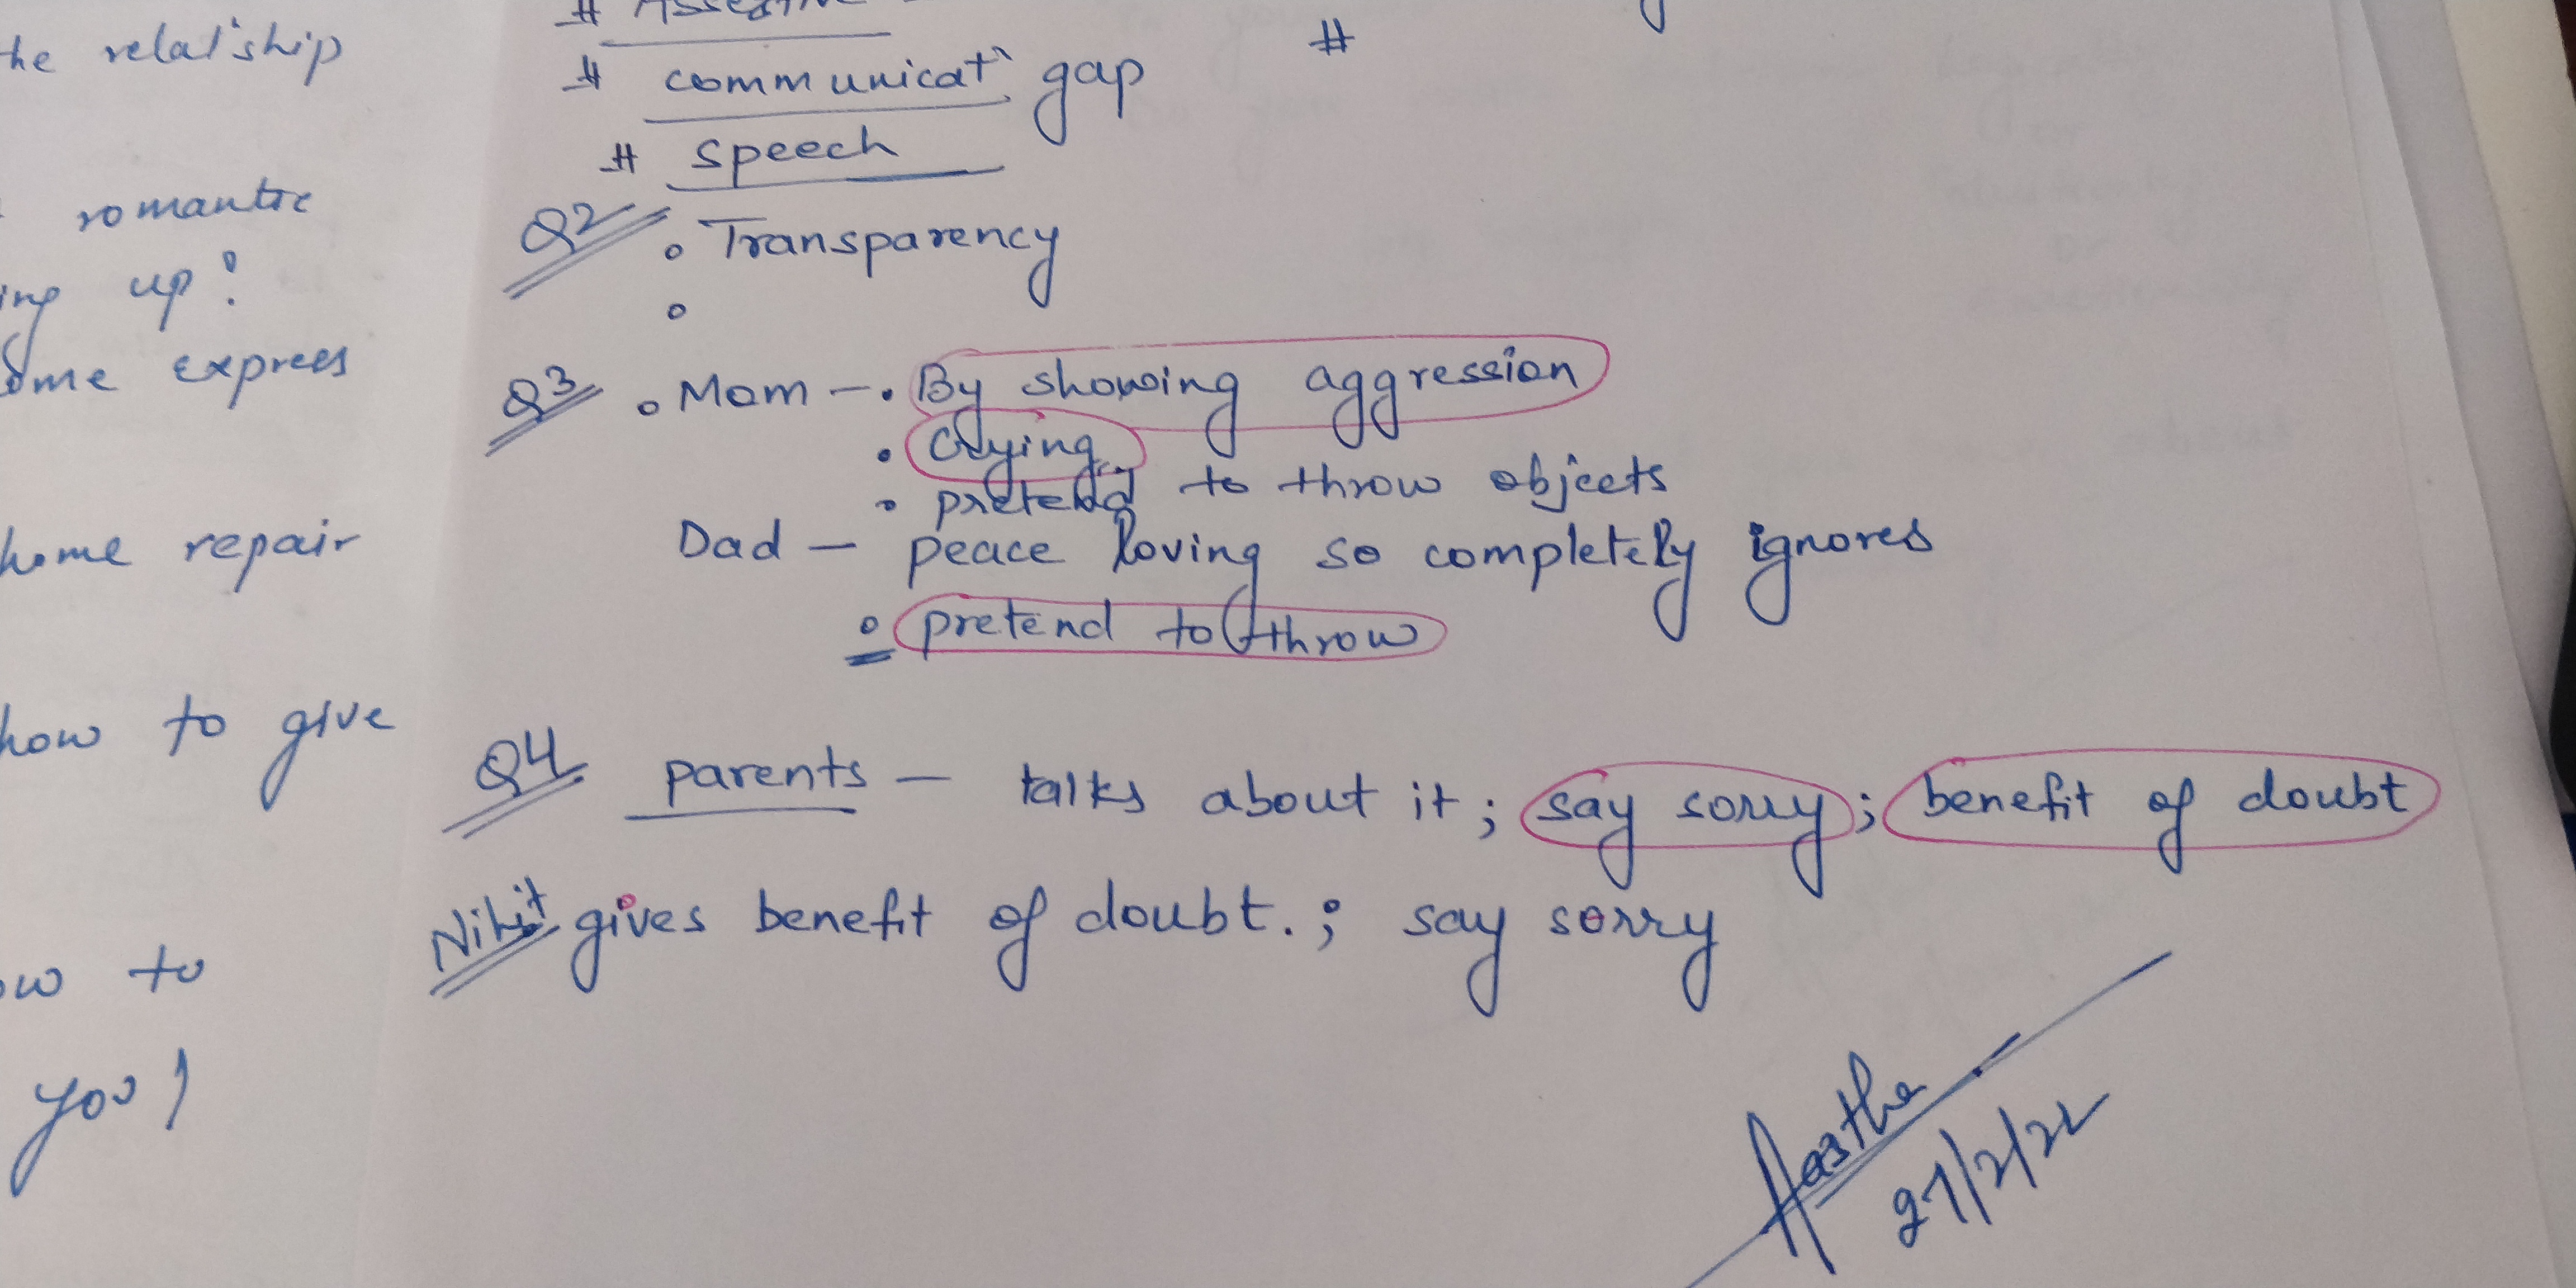 the relat'ship
romantic
ing up?
ome express
home repair
how to give
ow to
you!
# Assertive
# communicat` gap
#
# speech
Q2 Transparency
Q3 Mom - By showing aggression
crying
pretend to throw objects
Dad - peace loving so completely ignores
pretend to throw
Q4 parents - talks about it; say sorry; benefit of doubt
gives benefit of doubt.; say sorry
Aastha